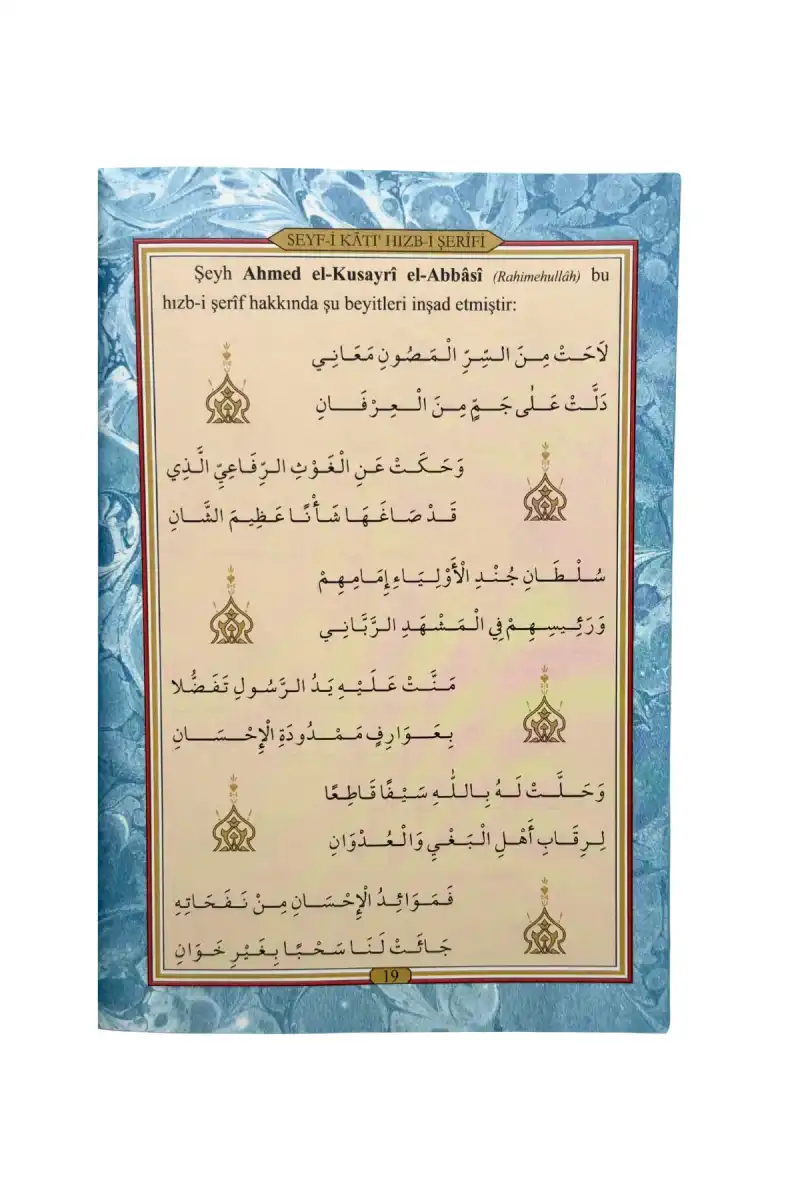 SEYF-İ KĀTI' HIZB-İ ŞERÎFİ
Şeyh Ahmed el-Kusayrî el-Abbâsî (Rahimehullâh) bu
hızb-i şerîf hakkında şu beyitleri inşad etmiştir:
لَاحَتْ مِنَ السِّرِّ الْمَصُونِ مَعَانِي
دَلَّتْ عَلٰى جَمٍّ مِنَ الْعِرْفَانِ
وَحَكَتْ عَنِ الْغَوْثِ الرِّفَاعِيِّ الَّذِي
قَدْ صَاغَهَا شَأْنًا عَظِيمَ الشَّانِ
سُلْطَانِ جُنْدِ الْأَوْلِيَاءِ إِمَامِهِمْ
وَرَئِيسِهِمْ فِي الْمَشْهَدِ الرَّبَّانِي
مَنَّتْ عَلَيْهِ يَدُ الرَّسُولِ تَفَضُّلا
بِعَوَارِفٍ مَمْدُودَةِ الْإِحْسَانِ
وَحَلَّتْ لَهُ بِاللّٰهِ سَيْفًا قَاطِعًا
لِرِقَابِ أَهْلِ الْبَغْيِ وَالْعُدْوَانِ
فَمَوَائِدُ الْإِحْسَانِ مِنْ نَفَحَاتِهِ
جَائَتْ لَنَا سَحْبًا بِغَيْرِ خَوَانِ
19